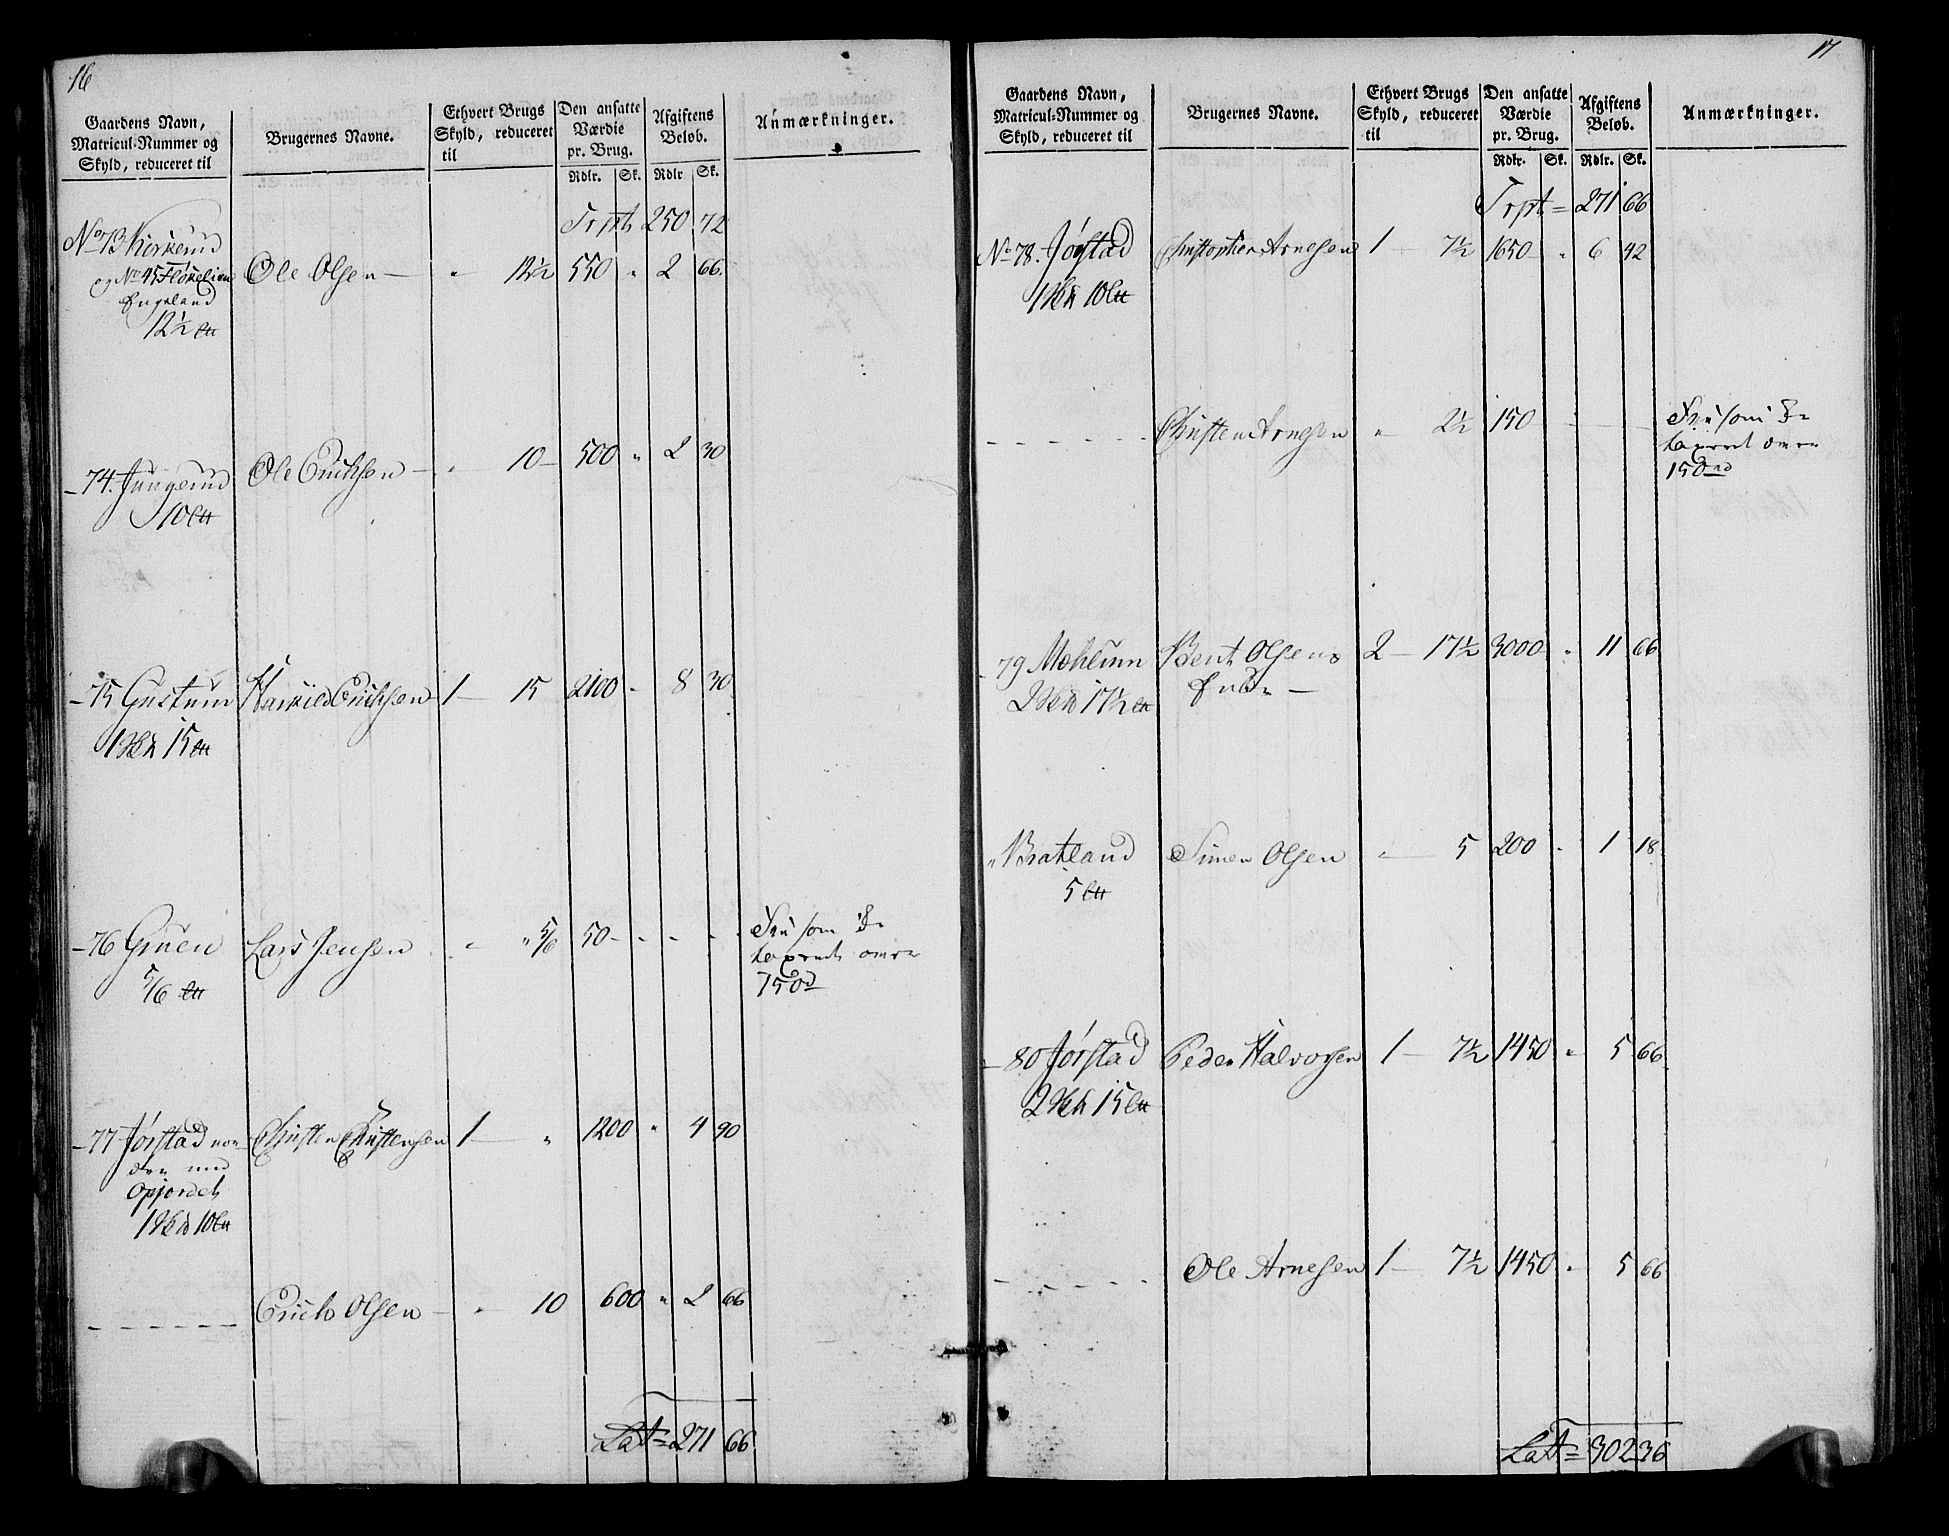 16
Gaardens Navn, Matricul-Nummer og Skyld, reduceret til
Brugernes Navne.
Ethvert Brugs Skyld, reduceret til
Den ansatte Værdie pr. Brug.
Afgiftens Beløb.
Anmærkninger.
Rdlr. Sk. Rdlr Sk.
Trpt 250 72
No 73 Kirkerud Ole Olsen — " 12½ 550 " 2 66
og No 45
Engeland
12½
— 74. Ole Erichsen — " 10 — 500 " 2 30
10
— 75 Gustum Erichsen 1 — 15 2100 " 8 30
1 15
— 76 Gruen Lars Jensen " " 5/6 50 - - - - Fri som
5/6 taxeret
150
— 77 Jørstad nor- Christen Christensen 1 — " 1200 " 4 90
dre med
Opjordet
1 10
— — — — Erich Olsen — " 10 600 " 2 66
Lat = 271 66
17
Gaardens Navn, Matricul-Nummer og Skyld, reduceret til
Brugernes Navne.
Ethvert Brugs Skyld, reduceret til
Den ansatte Værdie pr. Brug.
Afgiftens Beløb.
Anmærkninger.
Rdlr. Sk. Rdlr. Sk.
Trpt = 271 66
No 78. Jørstad Christopher Arnesen 1 — 7½ 1650 " 6 42
1 10
— — — — Christen Arnesen " 2½ 150 — — Fri som
taxeret
150
79 Mæhlum Bent Olsens 2 — 17½ 3000 " 11 66
2 17½ Enke —
" Bratland Simen Olsen " — 5 200 " 1 18
5
— 80 Jørstad Peder Halvorsen 1 — 7½ 1450 " 5 66
2 15
— — — — Ole Arnesen 1 — 7½ 1450 " 5 66
Lat = 302 36